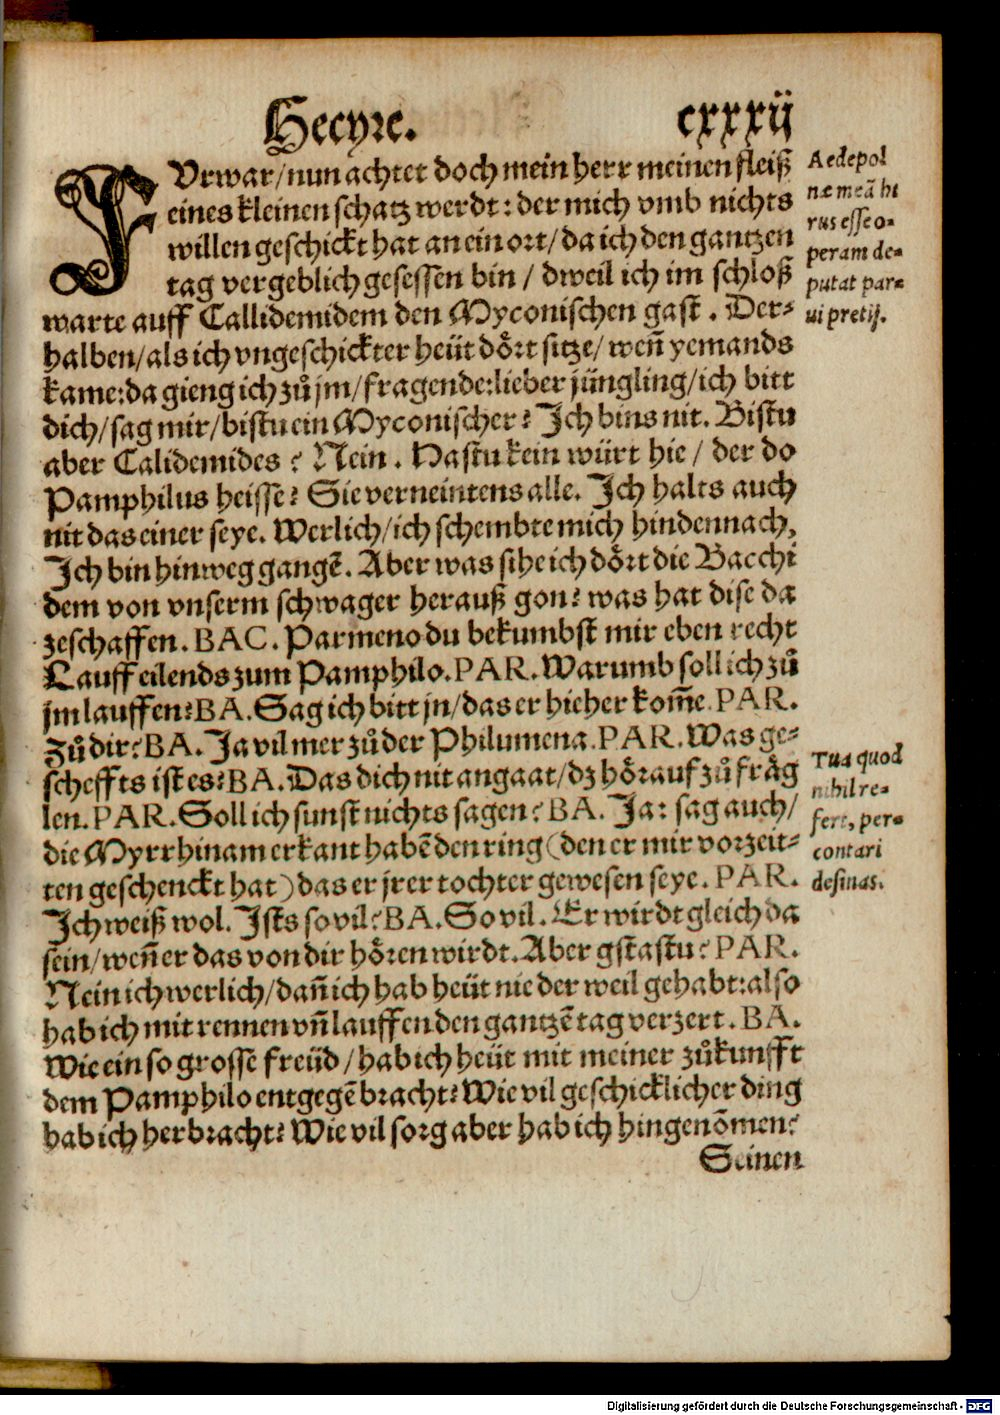 Hecyre. cxxxij
FUrwar/nun achtet doch mein herr meinen fleiß
eines kleinen schatz werdt: der mich vmb nichts
willen geschickt hat an ein ort/da ich den gantzen
tag vergeblich gesessen bin / dweil ich im schloß
warte auff Callidemidem den Myconischen gast . Der⸗
halben/als ich vngeschickter heüt doͤrt sitze/ weñ yemands
kame: da gieng ich zuͦ jm/fragende: lieber jüngling/ich bitt
dich/sag mir/bistu ein Myconischer? Ich bins nit. Bistu
aber Calidemides ? Nein . Hastu kein würt hie / der do
Pamphilus heisse? Sie verneintens alle. Ich halts auch
nit das einer seye. Werlich/ich schembte mich hindennach,
Ich bin hinweg gangẽ. Aber was sihe ich doͤrt die Bacchi
dem von vnserm schwager herauß gon? was hat dise da
zeschaffen. BAC. Parmeno du bekumbst mir eben recht
Lauff eilends zum Pamphilo. PAR. Warumb soll ich zuͦ
jm lauffen? BA. Sag ich bitt jn/das er hieher kom̃e. PAR.
Zuͦ dir? BA. Ja vil mer zuͦ der Philumena. PAR. Was ge⸗
scheffts ist es? BA. Das dich nit angaat/dz hoͤr auf zuͦ fraͤg
len. PAR. Soll ich sunst nichts sagen? BA. Ja: sag auch/
die Myrrhinam erkant habẽ den ring (den er mir vorzeit⸗
ten geschenckt hat) das er jrer tochter gewesen seye. PAR.
Ich weiß wol. Ists so vil? BA. So vil. Er wirdt gleich da
sein/weñ er das von dir hoͤren wirdt. Aber gstastu? PAR.
Nein ich werlich/dañ ich hab heüt nie der weil gehabt: also
hab ich mit rennen vñ lauffen den gantzẽ tag verzert. BA.
Wie ein so grosse freüd/hab ich heüt mit meiner zuͦkunfft
dem Pamphilo entgegẽ bracht? Wie vil geschicklicher ding
hab ich herbracht? Wie vil sorg aber hab ich hingenõmen?
Seinen
Aedepol
næ meã he
rus esse o⸗
peram de⸗
putat par⸗
ui pretij.
Tua quod
nihil re⸗
fert, per⸗
contari
desinas.
Digitalisierung gefördert durch die Deutsche Forschungsgemeinschaft - DFG